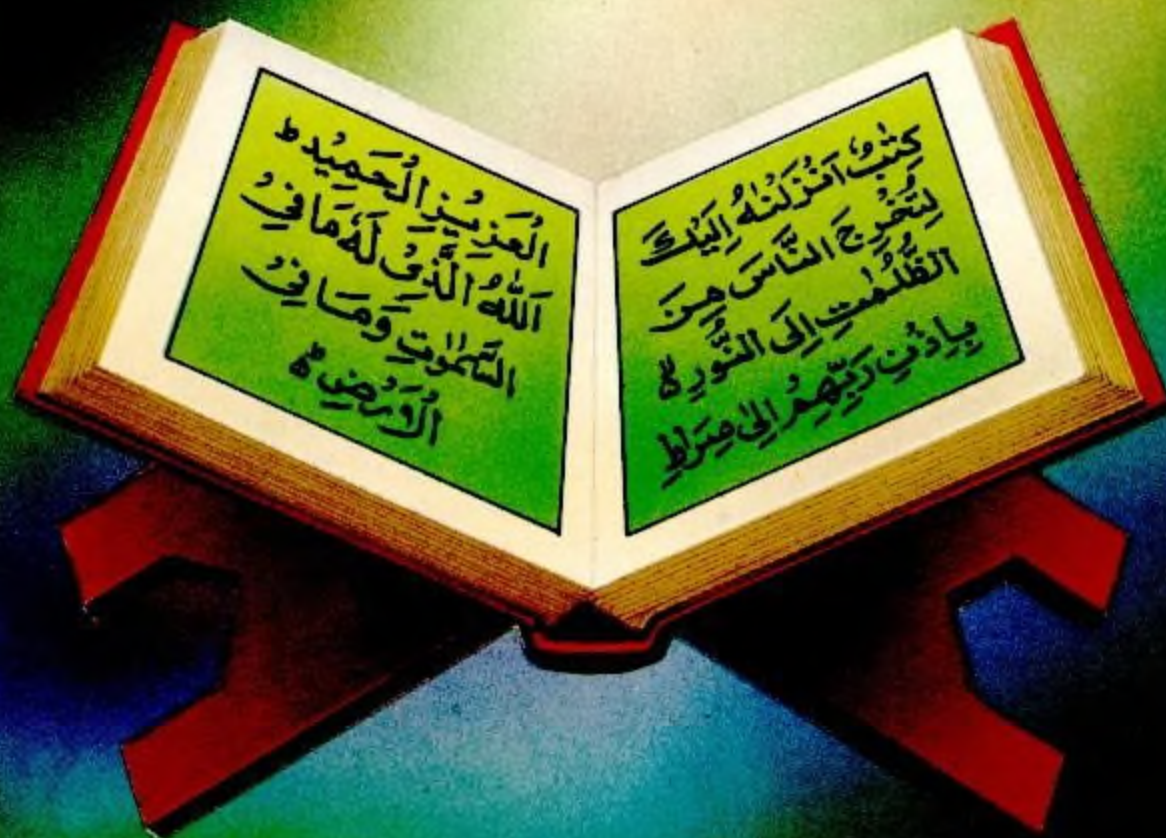 كِتٰبٌ اَنْزَلْنٰهُ اِلَيْكَ
لِتُخْرِجَ النَّاسَ مِنَ
الظُّلُمٰتِ اِلَى النُّوْرِ ۙ
بِاِذْنِ رَبِّهِمْ اِلٰى صِرَاطِ
الْعَزِيْزِ الْحَمِيْدِ ط
اَللّٰهُ الَّذِيْ لَهٗ مَا فِي
السَّمٰوٰتِ وَمَا فِي
الْاَرْضِ ۙ